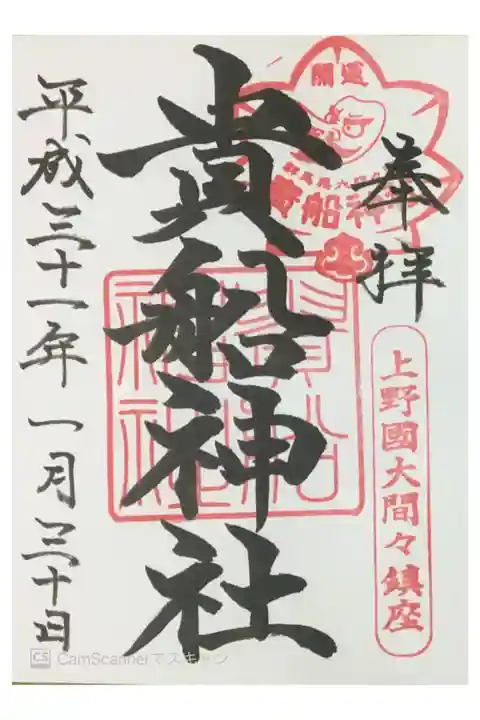 奉拝
開運
貴船神社
上野國大間々鎮座
貴船神社
貴船
神社
平成三十一年一月三十日
CS CamScannerでスキャン